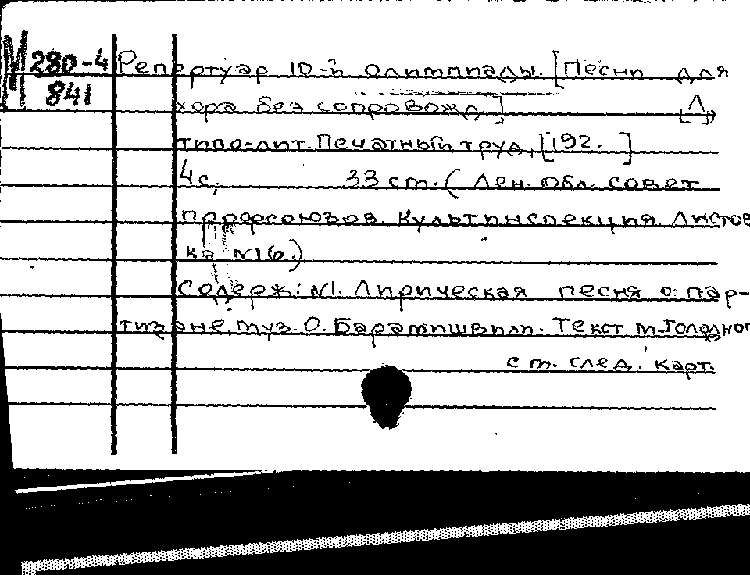 М 280-4 Репертуар 10-й олимпиады. [Песни для
841 хора без сопровожд.] [Л.],
типо-лит. Печатный труд, [192. ]
4с, 33 cm. (Лен. обл. совет
профсоюзов. Культинспекция. Листов
ка №16.)
Содерж: №1. Лирическая песня о пар-
тизане. муз. О. Барамишвили. Текст М. Голодного
см. след. карт.